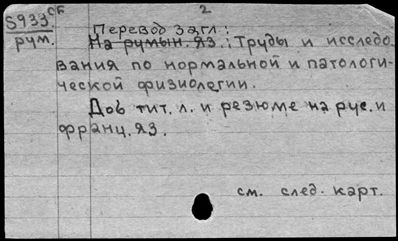 S933 СБ 2
рум. Перевод загл:
На румын. яз. Труды и исследо
вания по нормальной и патологи-
ческой физиологии.
Доб тит. л. и резюме на рус. и
франц. яз.
см. след. карт.